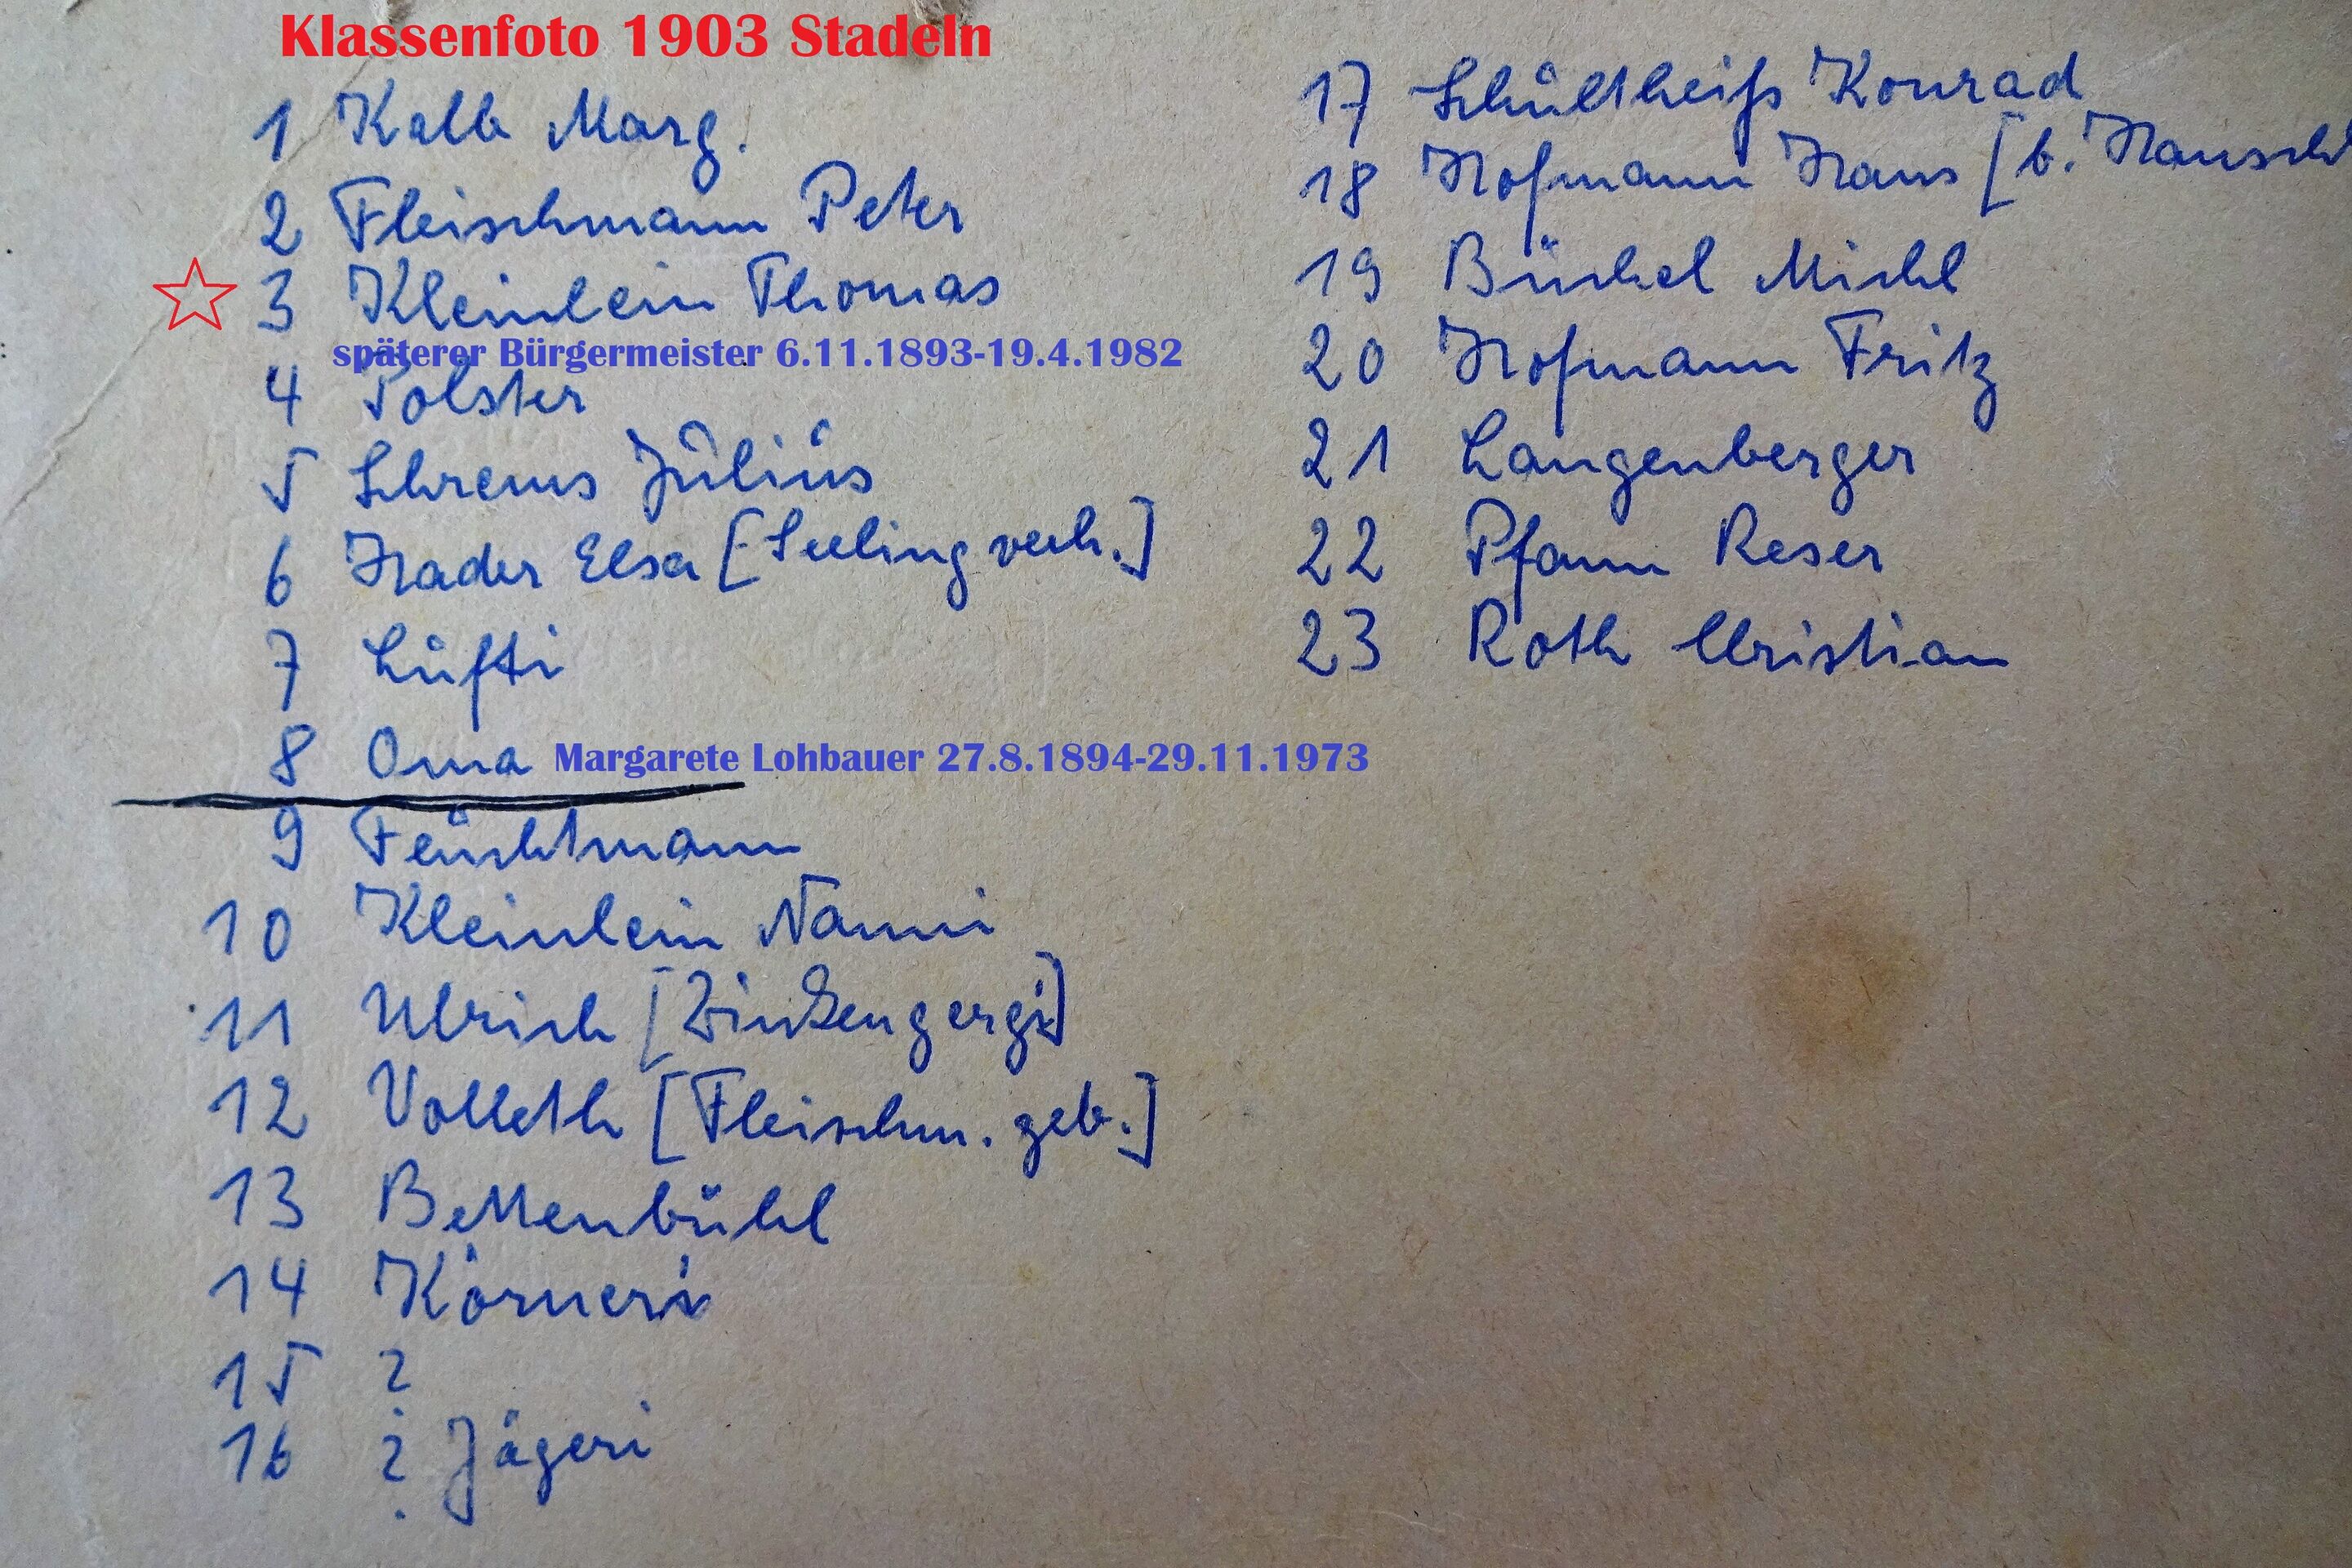 Klassenfoto 1903 Stadeln
1 Kalb Marg.
2 Fleischmann Peter
3 Kleinlein Thomas
späterer Bürgermeister 6.11.1893-19.4.1982
4 Polster
5 Schrems Julius
6 Hader Elsa [Seeling verh.]
7 Lufti
8 Oma Margarete Lohbauer 27.8.1894-29.11.1973
9 Feuchtmann
10 Kleinlein Nanni
11 Ulrich [Zinkengergi]
12 Volleth [Fleischm. geb.]
13 Bettenbühl
14 Körneri
15 ?
16 ? Jägeri
17 Schultheiß Konrad
18 Hofmann Hans [b.
19 Büchel Michl
20 Hofmann Fritz
21 Langenberger
22 Pfann Reser
23 Roth Christian